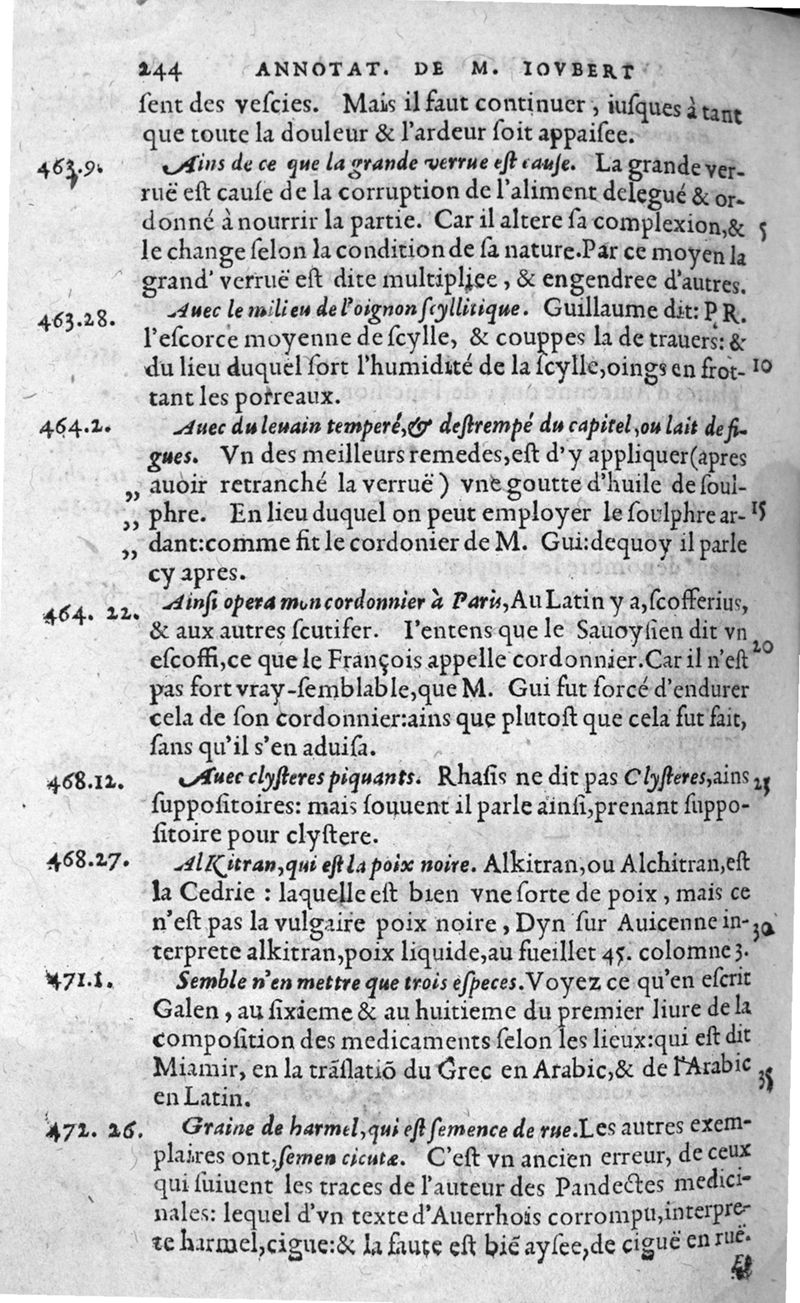 244 ANNOTAT. DE M. IOVBERT
ſent des veſcies. Mais il faut continuer, iuſques à tant
que toute la douleur & l'ardeur ſoit appaiſee.
463.9. Ains de ce que la grande verrue eſt cauſe. La grande ver-
ruë eſt cauſe de la corruption de l'aliment delegué & or-
donné à nourrir la partie. Car il altere ſa complexion,& 5
le change ſelon la condition de ſa nature.Par ce moyen la
grand' verruë eſt dite multipliee, & engendree d'autres.
463.28. Auec le milieu de l'oignon ſcyllitique. Guillaume dit: PR.
l'eſcorce moyenne de ſcylle, & couppes la de trauers: &
du lieu duquel ſort l'humidité de la ſcylle,oings en frot- 10
tant les porreaux.
464.2. Auec du leuain temperé,& deſtrempé du capitel,ou lait de fi-
gues. Vn des meilleurs remedes,eſt d'y appliquer(apres
„ auoir retranché la verruë) vne goutte d'huile de ſoul-
„ phre. En lieu duquel on peut employer le ſoulphre ar- 15
„ dant:comme fit le cordonier de M. Gui:dequoy il parle
cy apres.
464. 22. Ainſi opera mon cordonnier à Paris,Au Latin y a,ſcofferius,
& aux autres ſcutifer. I'entens que le Sauoyſien dit vn
eſcoffi,ce que le François appelle cordonnier.Car il n'eſt 20
pas fort vray-ſemblable,que M. Gui fut forcé d'endurer
cela de ſon cordonnier:ains que plutoſt que cela fut fait,
ſans qu'il s'en aduiſa.
468.12. Auec clyſteres piquants. Rhaſis ne dit pas Clyſteres,ains 25
ſuppoſitoires: mais ſouuent il parle ainſi,prenant ſuppo-
ſitoire pour clyſtere.
468.27. AlKitran,qui eſt la poix noire. Alkitran,ou Alchitran,eſt
la Cedrie : laquelle eſt bien vne ſorte de poix, mais ce
n'eſt pas la vulgaire poix noire, Dyn ſur Auicenne in- 30
terprete alkitran,poix liquide,au fueillet 45. colomne 3.
471.1. Semble n'en mettre que trois eſpeces.Voyez ce qu'en eſcrit
Galen, au ſixieme & au huitieme du premier liure de la
compoſition des medicaments ſelon les lieux:qui eſt dit
Miamir, en la trãſlatiõ du Grec en Arabic,& de l'Arabic 35
en Latin.
472. 26. Graine de harmel,qui eſt ſemence de rue.Les autres exem-
plaires ont,ſemen cicutæ. C'eſt vn ancien erreur, de ceux
qui ſuiuent les traces de l'auteur des Pandectes medici-
nales: lequel d'vn texte d'Auerrhois corrompu,interpre-
te harmel,cigue:& la faute eſt biẽ ayſee,de ciguë en ruë.